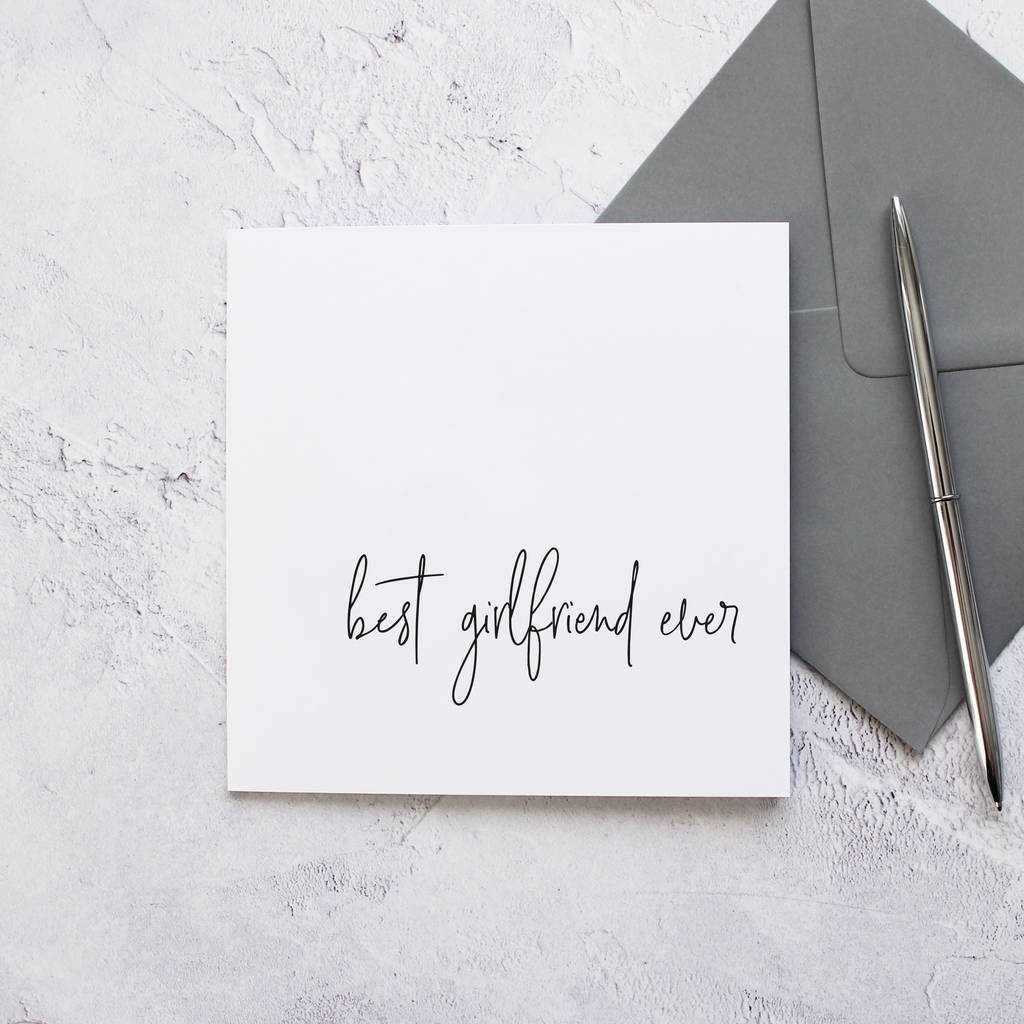 best girlfriend ever